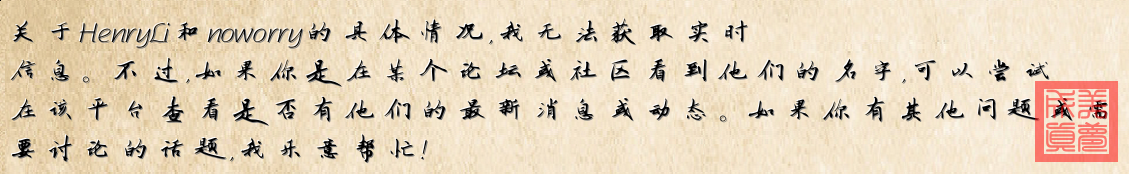 关于HenryLi和noworry的具体情况,我无法获取实时
信息。不过,如果你是在某个论坛或社区看到他们的名字,可以尝试
在该平台查看是否有他们的最新消息或动态。如果你有其他问题或需
要讨论的话题,我乐意帮忙!
美梦
成真